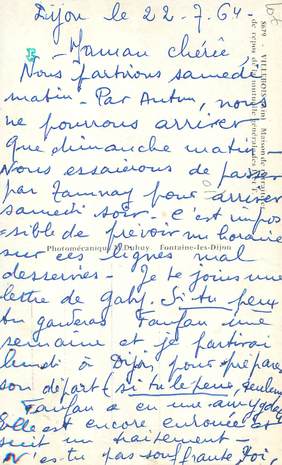 Dijon le 22-7-64-
- Maman chérie,
Nous partirons samedi
matin - Par Autun, nous
ne pouvons arriver
que dimanche matin -
Nous essaierons de passer
par pour arriver
samedi soir - C'est impos
sible de prévoir un horaire
sur ces lignes mal
desservies - Je te joins une
lettre de Gaby. Si tu peux
tu garderas Fanfan une
semaine et je partirai
lundi à Dijon, pour préparer
son départ (si tu le peux, seulement
Fanfan a eu une amygdal
Elle est encore enrouée et
suit un traitement -
N'es-tu pas souffrante toi,
8679 - VILLERSEXEL
Photomécanique Dubuy Fontaine-les-Dijon